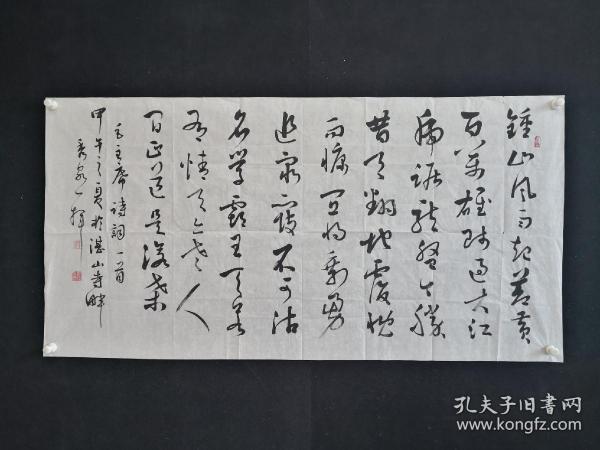 鍾山风雨起苍黄
百万雄师过大江
虎踞龙盘今胜
昔天翻地覆慨
而慷宜将剩勇
追穷寇不可沽
名学霸王天若
有情天亦老人
间正道是沧桑
毛主席诗词一首
甲午之夏於湛山寺畔
孔夫子旧书网
www.kongfz.com